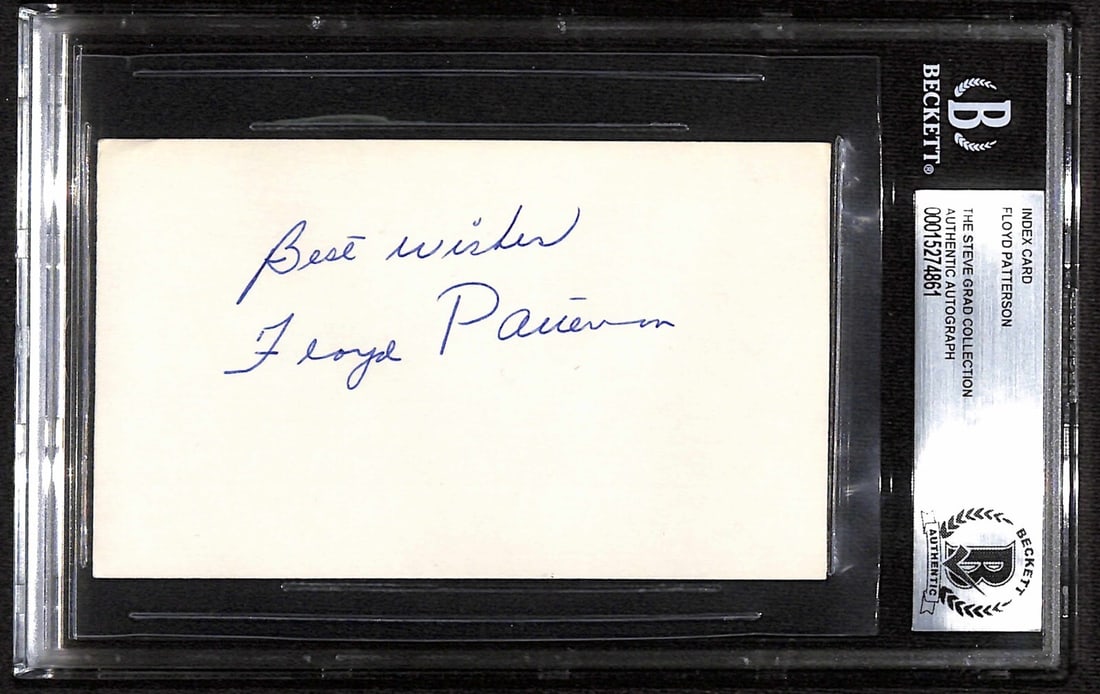 Best wishes
Floyd Patterson
BECKETT®
INDEX CARD
FLOYD PATTERSON
THE STEVE GRAD COLLECTION
AUTHENTIC AUTOGRAPH
00015274861
BECKETT
AUTHENTIC